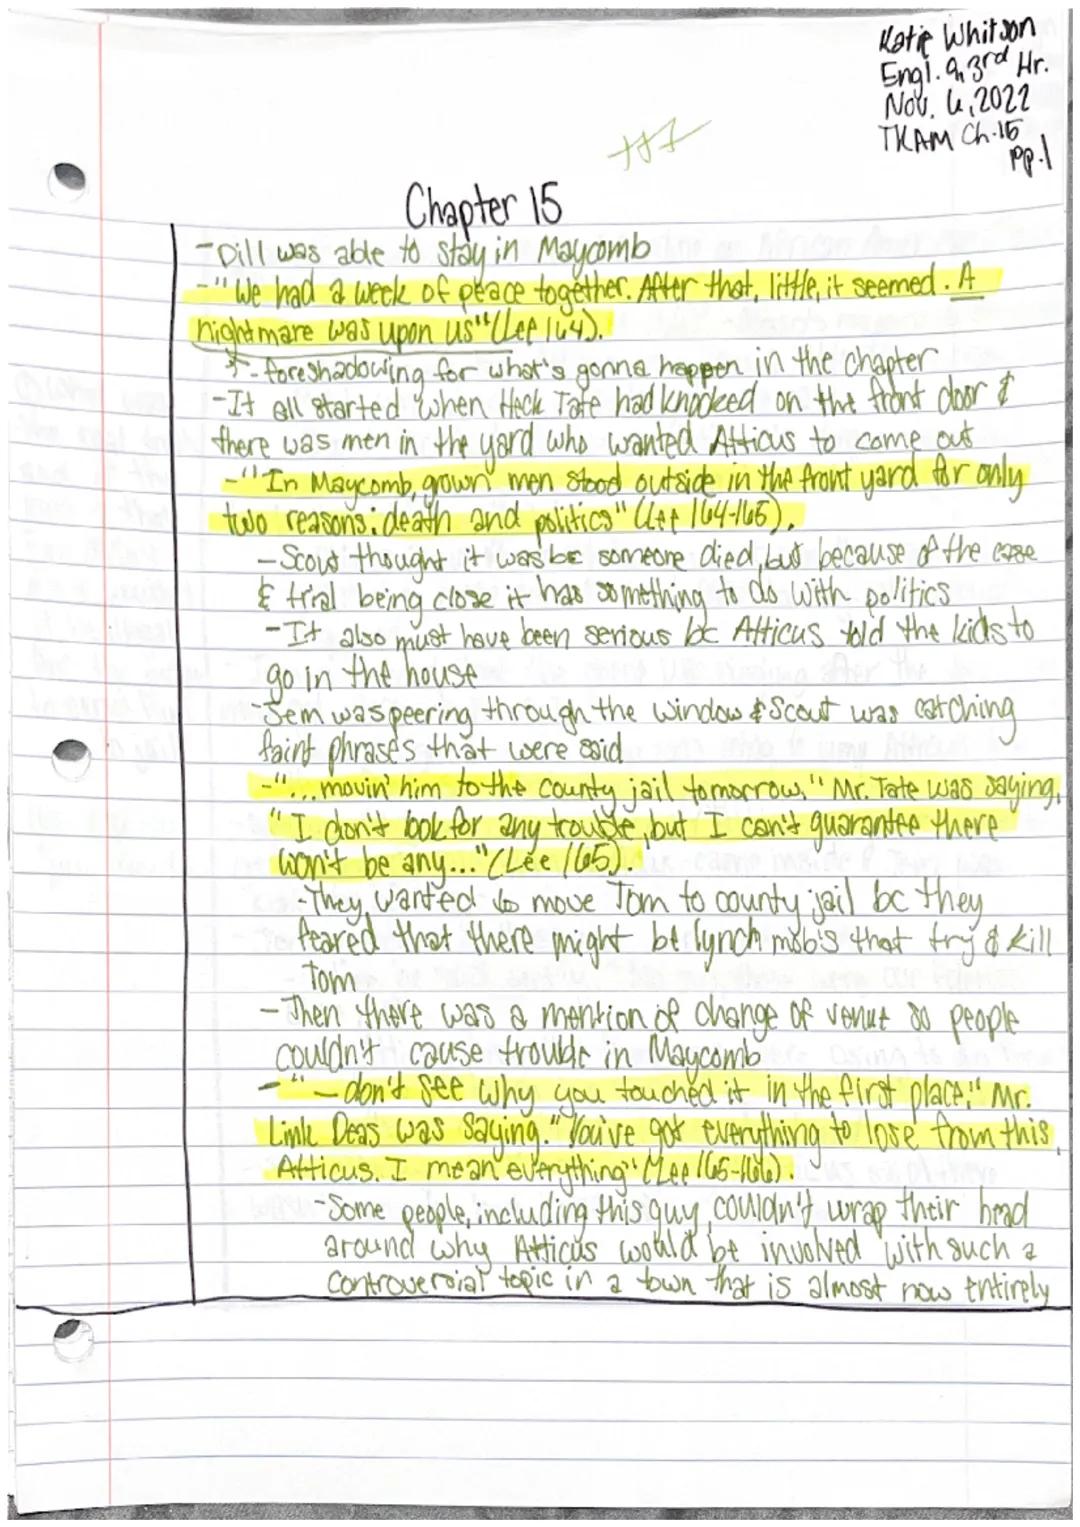 Katie Whitson
Engl. 9, 3rd Hr.
Nov. 6, 2022
TKAM Ch.15
pp.1
Chapter 15
-Dill was able to stay in Maycomb
-"We had a week of peace together. After that, little, it seemed. A
nightmare was upon us" (Lee 164).
- foreshadowing for what's gonna happen in the chapter
-It all started when Heck Tate had knocked on the front door &
there was men in the yard who wanted Atticus to come out
-"In Maycomb, grown men stood outside in the front yard for only
two reasons: death and politics" (Lee 164-165).
-Scout thought it was bc someone died, but because of the case
& trial being close it has something to do with politics
-It also must have been serious bc Atticus told the kids to
go in the house
-Jem was peering through the window & Scout was catching
faint phrases that were said
-"...movin' him to the county jail tomorrow," Mr. Tate was saying,
"I don't look for any trouble, but I can't guarantee there
won't be any..." (Lee 165).
-They wanted to move Tom to county jail bc they
feared that there might be lynch mob's that try & kill
Tom
-Then there was a mention of change of venue so people
couldn't cause trouble in Maycomb
-"—don't see why you touched it in the first place," Mr.
Link Deas was saying. "You've got everything to lose from this,
Atticus. I mean everything" (Lee 165-166).
-Some people, including this guy, couldn't wrap their head
around why Atticus would be involved with such a
controversial topic in a town that is almost now entirely